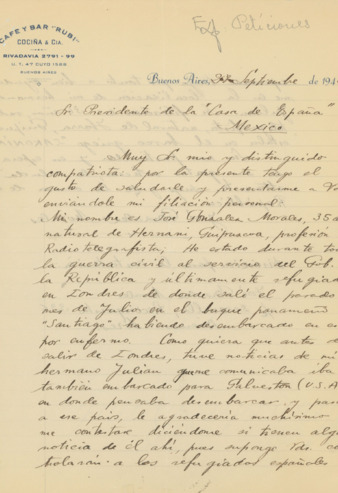 CAFE Y BAR "RUBI"
COCIÑA & CIA.
RIVADAVIA 2791 - 99
U. T. 47 CUYO 1566
BUENOS AIRES
Peticiones
Buenos Aires, Septiembre de 194
Sr Presidente de la "Casa de España"
Mexico
Muy Sr mio y distinguido
compatriota: por la presente tengo el
gusto de saludarle y presentarme a Vd
enviandole mi filiación personal.
Mi nombre es José Gonzalez Morales, 35 a
natural de Hernani, Guipuzcoa, profesión
Radiotelegrafista; He estado durante to
la guerra civil al servicio del Gob.
la República y últimamente refugiad
en Londres de donde salí el pasado
mes de Julio en el buque panameño
"Santiago" habiendo desembarcado en es
por enfermo. Como quiera que antes de
salir de Londres, tuve noticias de mi
hermano Julian que me comunicaba iba
también embarcado para Galveston (U.S.A
en donde pensaba desembarcar y pasar
a ese país, le agradeceria muchisimo
me contestase diciendome si tienen algu
noticia de él ahí, pues supongo Vds. co
trolarán a los refugiados españoles